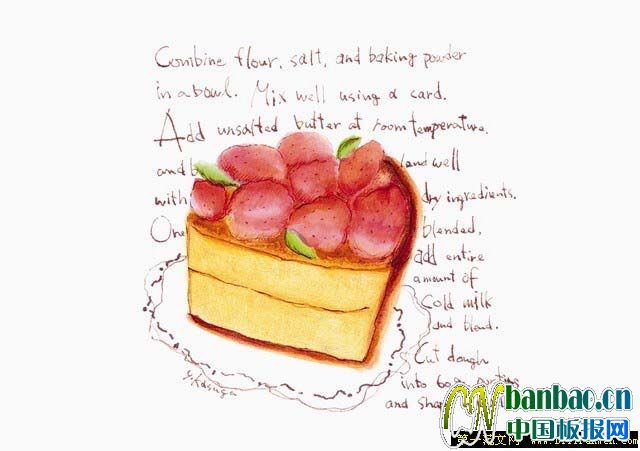 Combine flour, salt, and baking powder
in a bowl. Mix well using a card.
Add unsalted butter at room temperature,
and b land well
with dry ingredients.
One blended,
add entire
amount of
Cold milk
and blend.
Cut dough
into 60g
and shap
banbao.cn
中国板报网